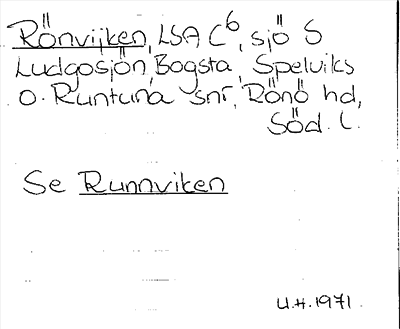 Rönviken, LSA C6, sjö S
Ludgosjön, Bogsta, Spelviks
o. Runtuna snr, Rönö hd,
Söd. l.
Se Runnviken
U.H. 1971